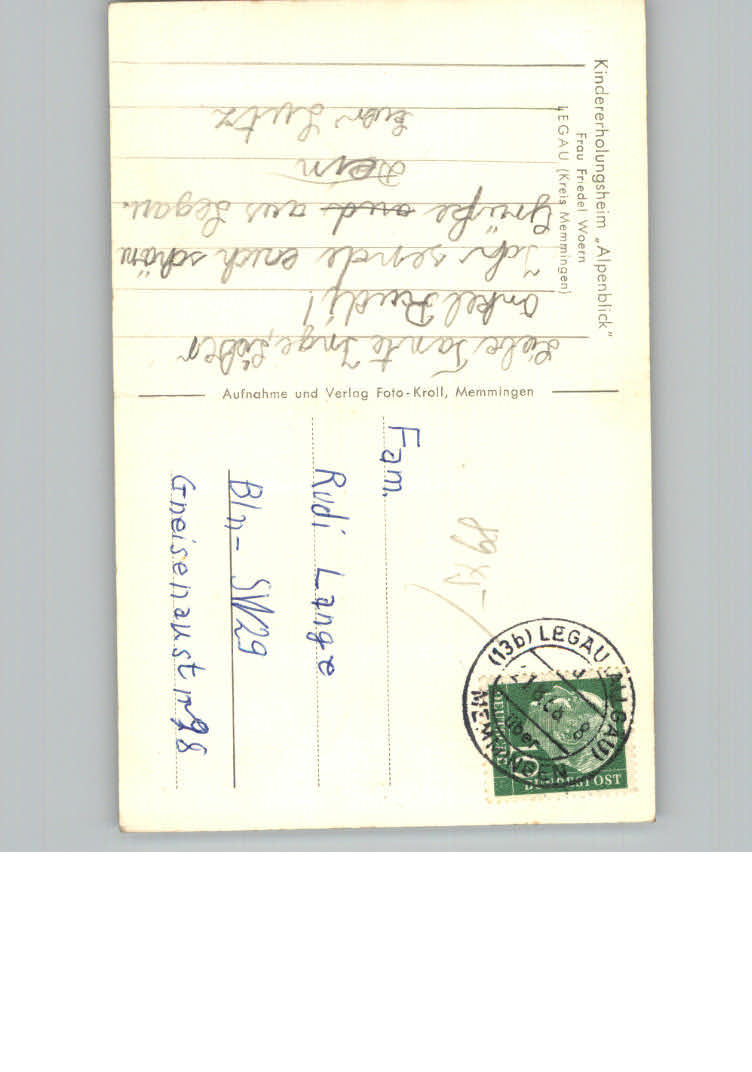 Kindererholungsheim „Alpenblick"
Frau Friedel Woern
LEGAU (Kreis Memmingen)
Liebe Tante Inge, Lieber
Onkel Rudi!
Ich sende euch schön
Grüße and aus Legau.
Dein
Lutz
Aufnahme und Verlag Foto-Kroll, Memmingen
Fam.
Rudi Lange
Bln - SW29
Gneisenaustr 98
(13b) LEGAU (ALLGÄU)
über
MEMMINGEN
DEUTSCHE
BUNDESPOST
10